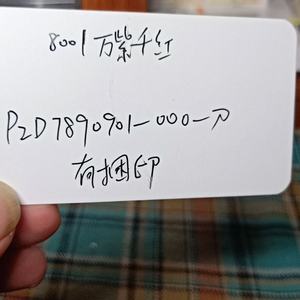 8001万紫千红
PZD7890901-000一刀
有捆印